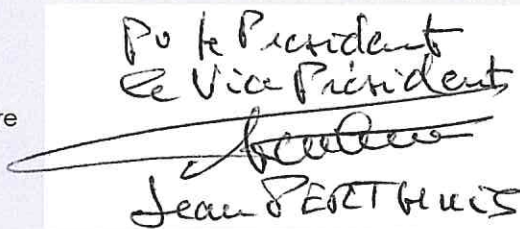 Po le President
le Vice Président
re
Jean PERTHUIS